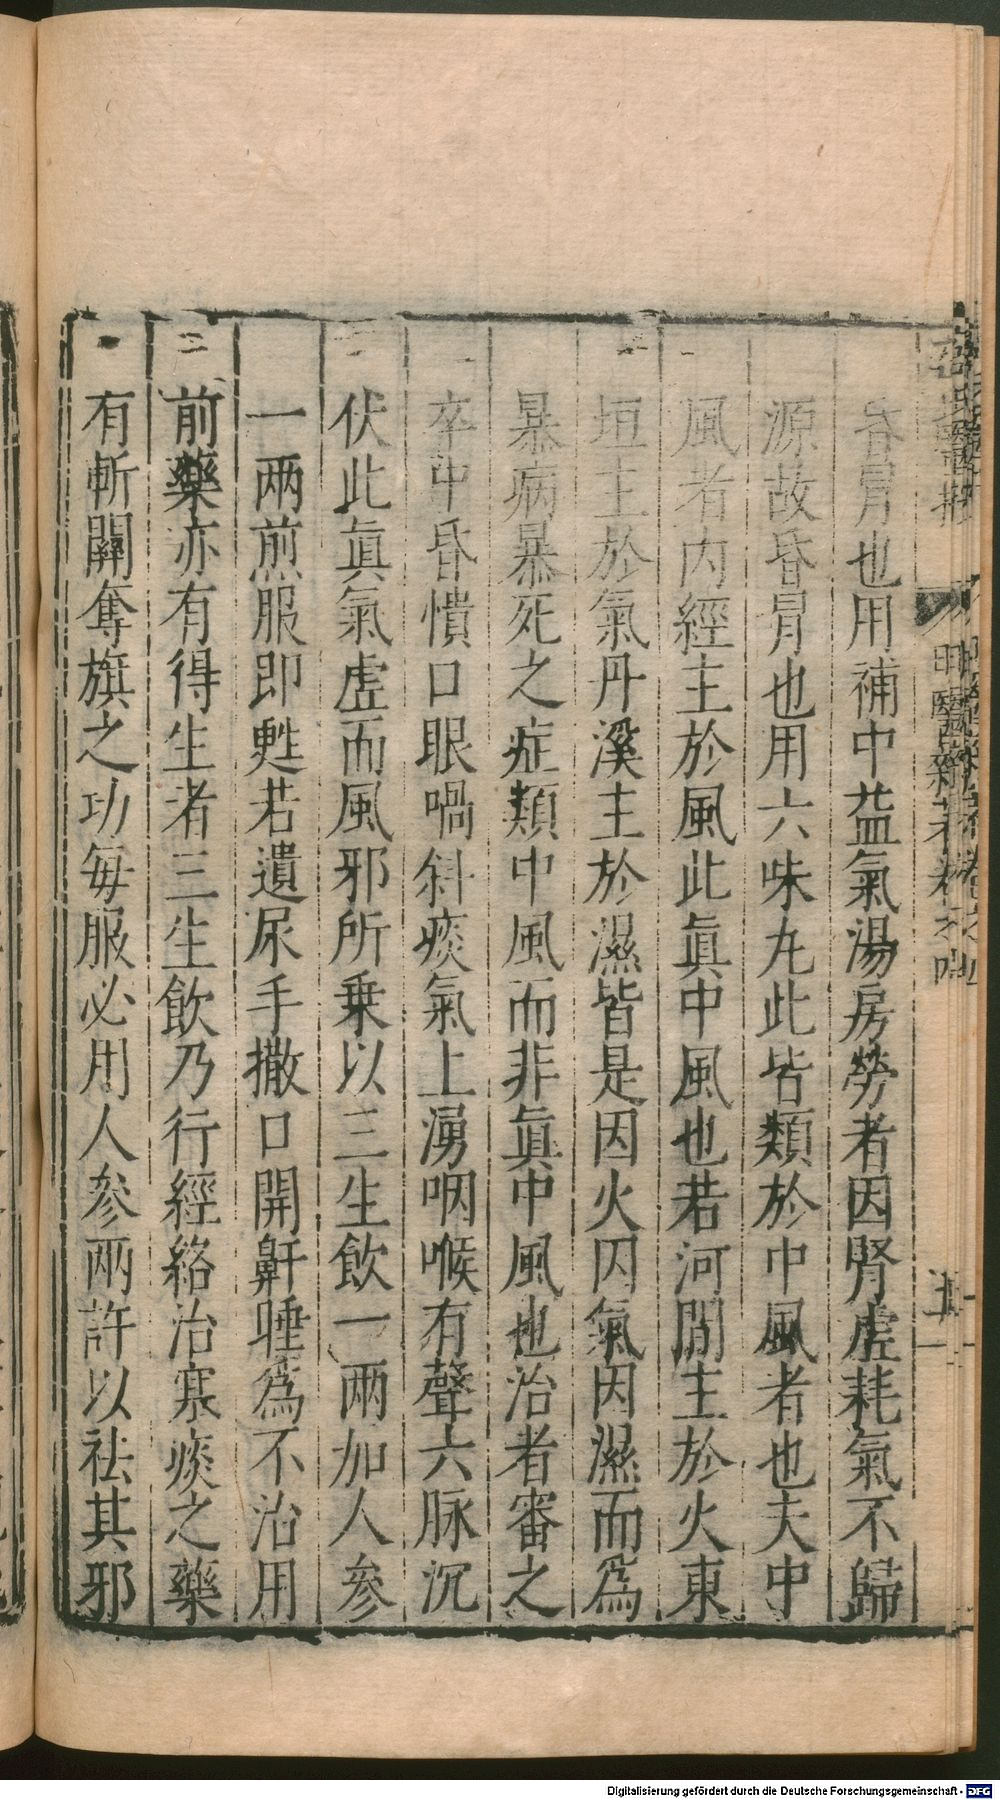 昏冐也用補中益氣湯房勞者因腎虛耗氣不歸
源故昏冐也用六味丸此皆類於中風者也夫中
風者内經主於風此眞中風也若河間主於火東
垣主於氣丹溪主於濕皆是因火因氣因濕而爲
暴病暴死之症類中風而非眞中風也治者審之
卒中昏憒口眼喎斜痰氣上湧咽喉有聲六脉沉
伏此眞氣虛而風邪所乗以三生飲一两加人參
一两煎服即甦若遺尿手撒口開鼾睡爲不治用
前藥亦有得生者三生飲乃行經絡治寒痰之藥
有斬關奪旗之功每服必用人參兩許以祛其邪
Digitalisierung gefördert durch die Deutsche Forschungsgemeinschaft - DFG